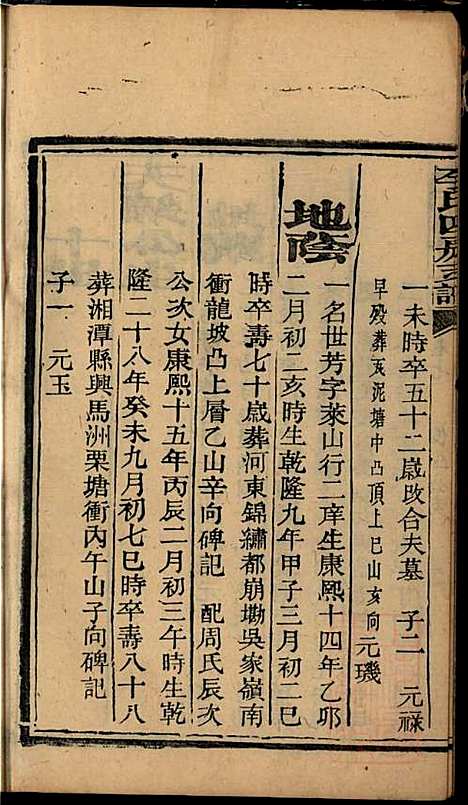 李氏四房支譜
一未時卒五十二歲改合夫墓 子二 元祿
早殿葬亥泥塘中凸頂上巳山亥向 元璣
地蔭
一名世芳字萊山行二庠生康熙十四年乙卯
二月初二亥時生乾隆九年甲子三月初二巳
時卒壽七十歲葬河東錦繡都崩墈吳家嶺南
衝龍坡凸上層乙山辛向碑記 配周氏辰次
公次女康熙十五年丙辰二月初三午時生乾
隆二十八年癸未九月初七巳時卒壽八十八
葬湘潭縣興馬洲栗塘衝內午山子向碑記
子一 元玉